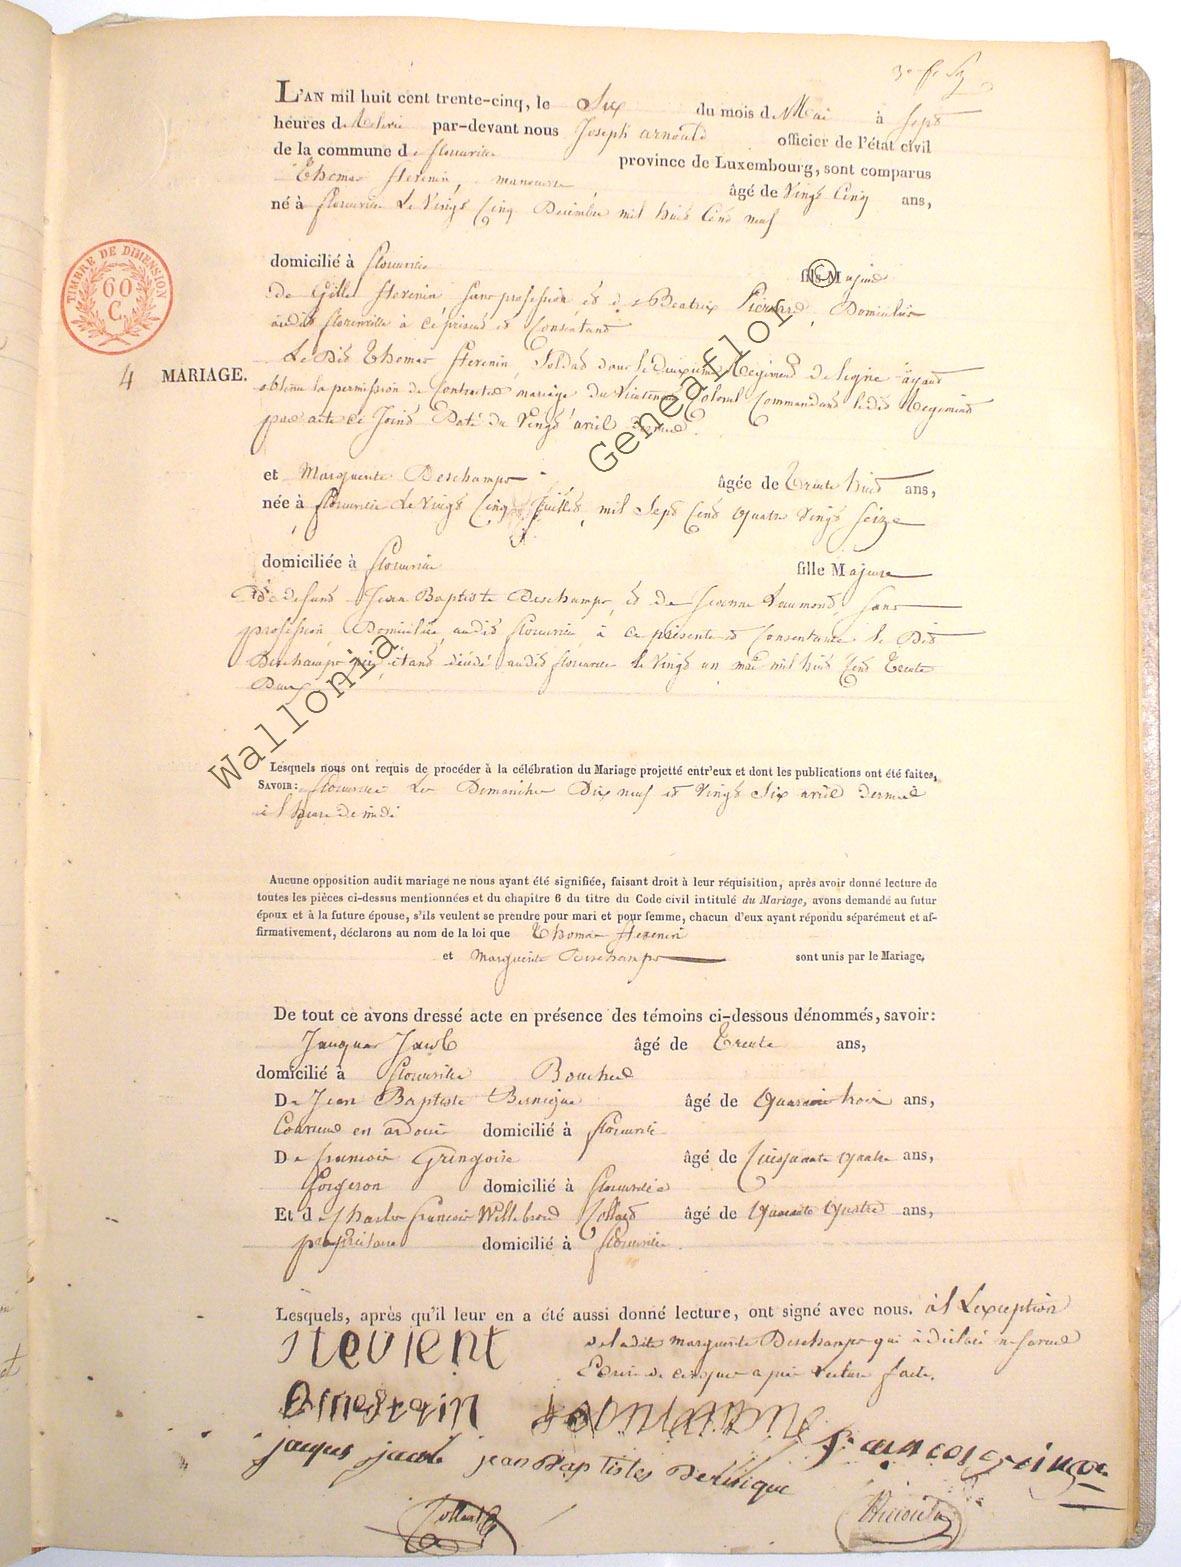 L'AN mil huit cent trente-cinq, le Six du mois de Mai à Sept
heures de par-devant nous Joseph arnould officier de l'état civil
de la commune de florenville province de Luxembourg, sont comparus
Thomas Stevenin, manœuvre âgé de Vingt Cinq ans,
né à florenville Le Vingt Cinq Decembre mil huit Cent neuf
domicilié à florenville fils Majeur
de Gille Stevenin sans profession, et de Beatrix Pierrard, Domiciliés
audit florenville à ce présens et Consentans
TIMBRE DE DIMENSION
60
C.
4 MARIAGE.
Le Dit Thomas Stevenin, Soldat dans le deuxieme Regiment de ligne ayant
obtenu la permission de Contracter mariage du Lieutenant Colonel Commandant ledit Regiment
par acte ci Joint Daté du Vingt avril dernier.
et Marguerite Deschamps âgée de Trente huit ans,
née à florenville Le Vingt Cinq Juillet, mil Sept Cent Quatre Vingt Seize
domiciliée à florenville fille Majeure
De defunt Jean Baptiste Deschamps, et de Jeanne Laumont, Sans
profession Domiciliée, audit florenville à ce présente et Consentante le Dit
Deschamps étant décédé audit florenville le Vingt un mai mil huit Cent Trente
Deux
Lesquels nous ont requis de procéder à la célébration du Mariage projetté entr'eux et dont les publications ont été faites,
SAVOIR: florenville Les Dimanches Dix neuf et Vingt Six avril dernier
à l'heure de midi
Aucune opposition audit mariage ne nous ayant été signifiée, faisant droit à leur réquisition, après avoir donné lecture de
toutes les pièces ci-dessus mentionnées et du chapitre 6 du titre du Code civil intitulé du Mariage, avons demandé au futur
époux et à la future épouse, s'ils veulent se prendre pour mari et pour femme, chacun d'eux ayant répondu séparément et af-
firmativement, déclarons au nom de la loi que Thomas Stevenin
et Marguerite Deschamps sont unis par le Mariage.
De tout ce avons dressé acte en présence des témoins ci-dessous dénommés, savoir:
Jacques Jacob âgé de Trente ans,
domicilié à florenville Boucher
De Jean Baptiste Bernique âgé de Quarante trois ans,
Couvreur en ardoise domicilié à florenville
De francois Gringoire âgé de Cinquante Quatre ans,
forgeron domicilié à florenville
Et de Charles francois Willebrord Collard âgé de Quarante Quatre ans,
propriétaire domicilié à florenville
Lesquels, après qu'il leur en a été aussi donné lecture, ont signé avec nous. à l'exception
de ladite marguerite Deschamps qui à déclaré ne savoir
Ecrire de ce requise apres Lecture faite.
jacques jacob jean baptistes Bernique francois gringoire
Collard
Wallonia Geneaflor ©